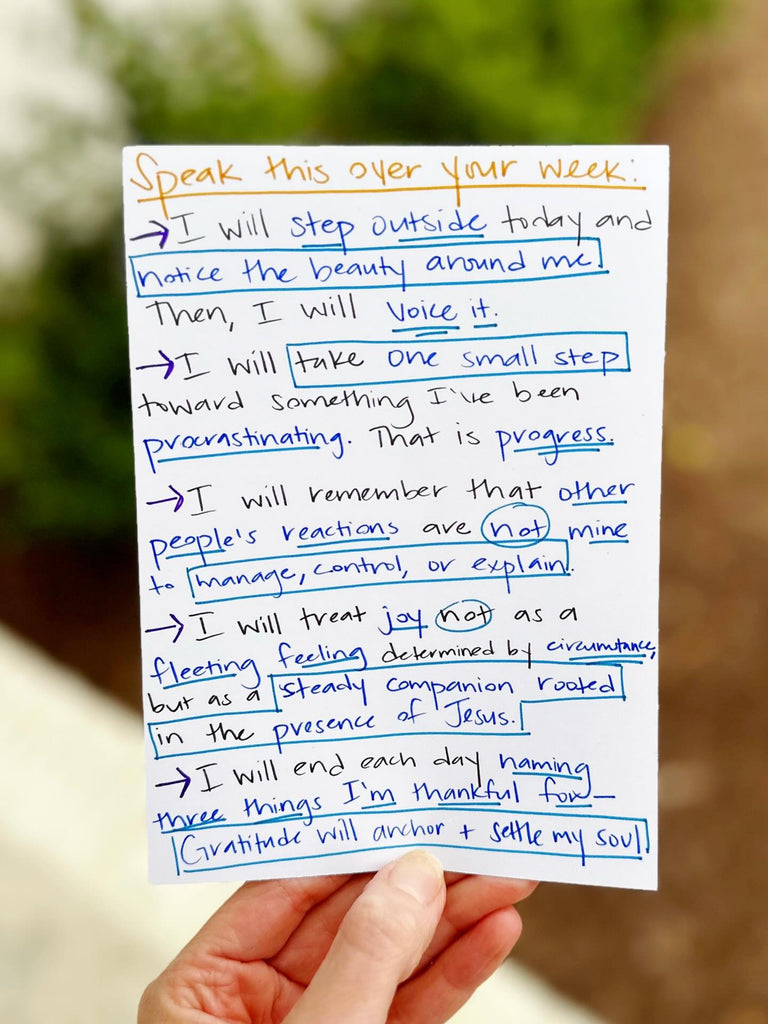 Speak this over your week:
→ I will step outside today and
notice the beauty around me.
Then, I will voice it.
→ I will take one small step
toward something I've been
procrastinating. That is progress.
→ I will remember that other
people's reactions are not mine
to manage, control, or explain.
→ I will treat joy not as a
fleeting feeling determined by circumstance,
but as a steady companion rooted
in the presence of Jesus.
→ I will end each day naming
three things I'm thankful for—
Gratitude will anchor + settle my soul